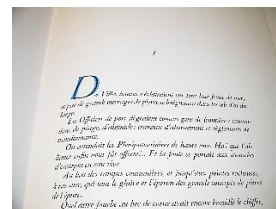 I
Des Villes hautes s'éclairaient sur tout leur front de mer,
et par de grands ouvrages de pierre se baignaient dans les sels d'or du
large.
Les Officiers de port siégeaient comme gens de frontière :
de péage, d'aiguade ; travaux d'abornement et règlements de
transhumance.
On attendait les Plénipotentiaires de haute mer. Ha ! que l'al-
liance enfin nous fût offerte !... Et la foule se portait aux avancées
d'escarpes en eau vive
Au bas des rampes coutumières, et jusqu'aux pointes rocheuses,
à ras mer, qui sont le glaive et l'éperon des grands concepts de pierre
de l'épure.
Quel astre fourbe au bec de corne avait encore brouillé le chiffre,